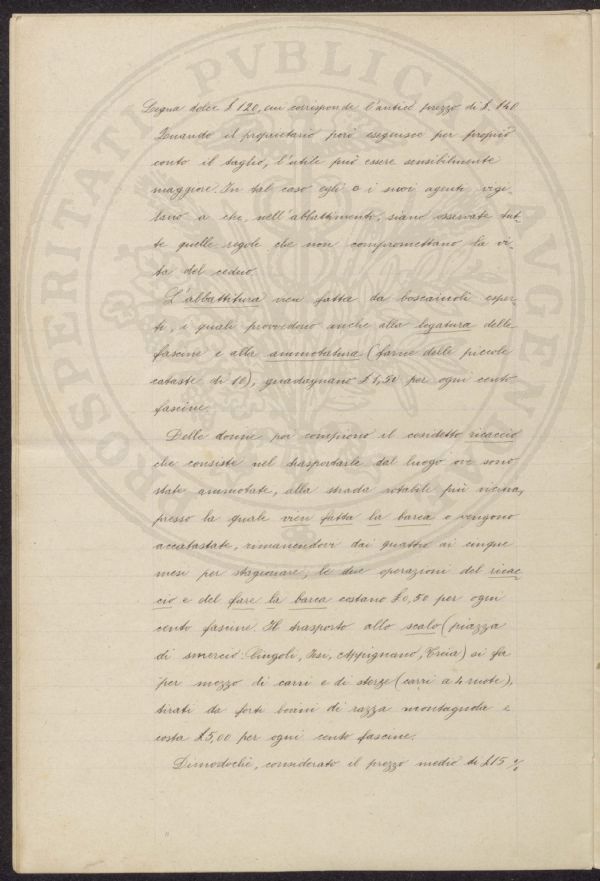 Legna dolce £ 120, cui corrisponde l'antico prezzo di £. 140
Quando il proprietario però eseguisce per proprio
conto il taglio, l'utile può essere sensibilmente
maggiore. In tal caso egli e i suoi agenti vigi_
lano a che, nell'abbattimento, siano osservate tut_
te quelle regole che non compromettano la vi_
ta del ceduo.
L'abbattitura vien fatta da boscaiuoli esper_
ti, i quali provvedono anche alla legatura delle
fascine e alla ammotatura (farne delle piccole
cataste di 10), guadagnano £ 1,50 per ogni cento
fascine.
Delle donne poi compiono il cosidetto ricaccio
che consiste nel trasportarle dal luogo ove sono
state ammotate, alla strada rotabile più vicina,
presso la quale vien fatta la barca o vengono
accatastate, rimanendovi dai quattro ai cinque
mesi per stagionare; le due operazioni del ricac_
cio e del fare la barca costano £0,50 per ogni
cento fascine. Il trasporto allo scalo (piazza
di smercio: Cingoli, Jesi, Appignano, Treia) si fa
per mezzo di carri e di sterze (carri a 4 ruote),
tirati da forti bovini di razza montagnola e
costa £5,00 per ogni cento fascine.
Dimodochè, considerato il prezzo medio di £15 %
PROSPERITATI PVBLICAE AVGENDAE